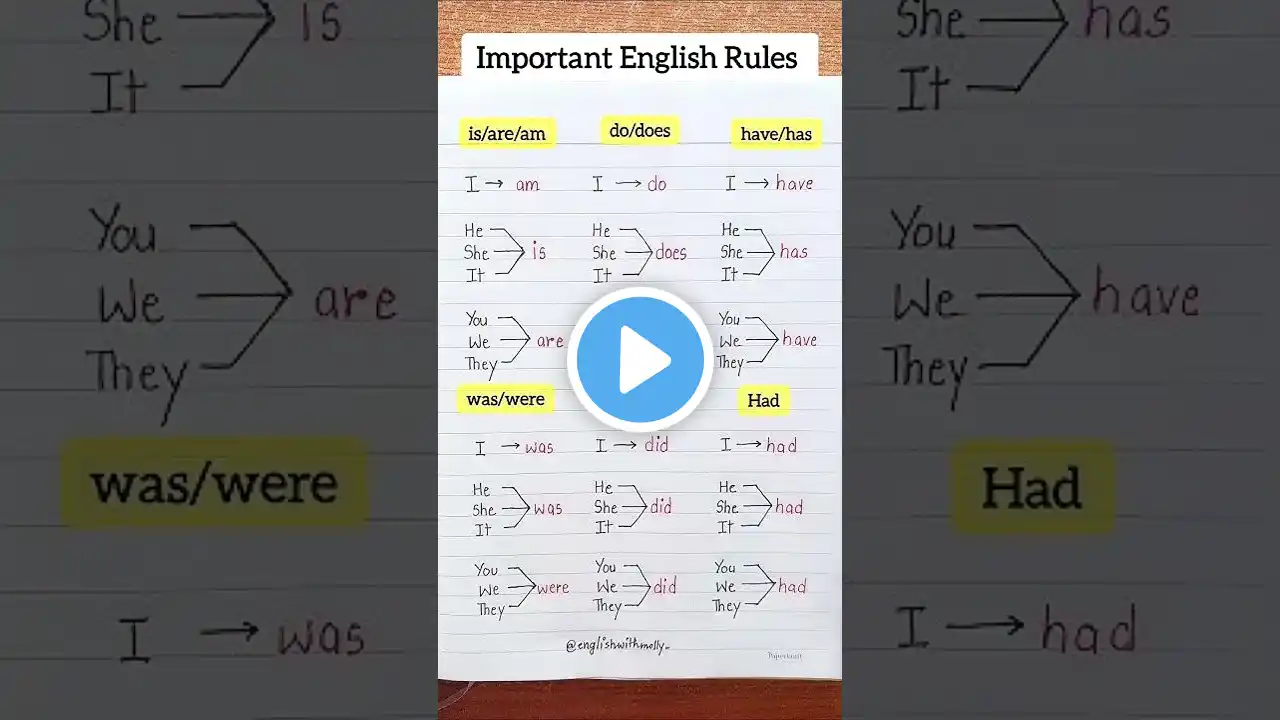 Important English Rules
is/are/am do/does have/has
I → am I → do I → have
He He He
She is She does She has
It It It
You You
We are We have
They They
was/were Had
I → was I → did I → had
He He He
She was She did She had
It It It
You You You
We were We did We had
They They They
@englishwithmolly_
She is
It
You
We are
They
was/were
I → was
She has
It
You
We have
They
Had
I → had